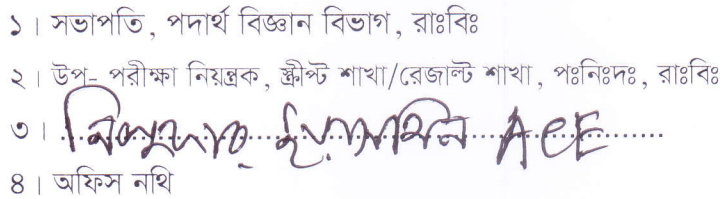 ১। সভাপতি, পদার্থ বিজ্ঞান বিভাগ, রাঃবিঃ
২। উপ- পরীক্ষা নিয়ন্ত্রক, স্ক্রীপ্ট শাখা/রেজাল্ট শাখা, পঃনিঃদঃ, রাঃবিঃ
৩। ইয়াসমিন ACE
৪। অফিস নথি